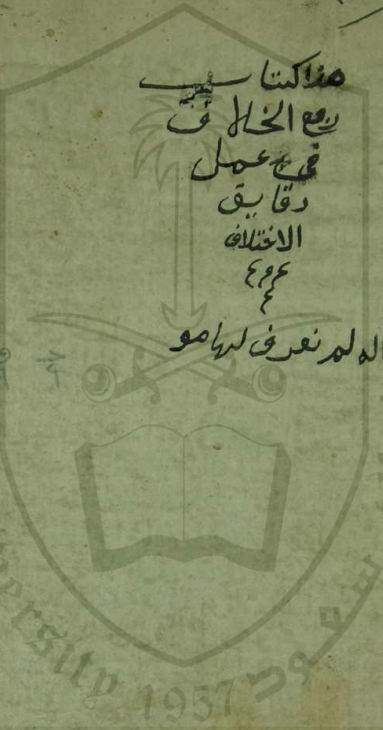 هذا كتاب
رفع الخلاف
في عمل
دقايق
الاختلاف
لم نعرف لها مو
1957